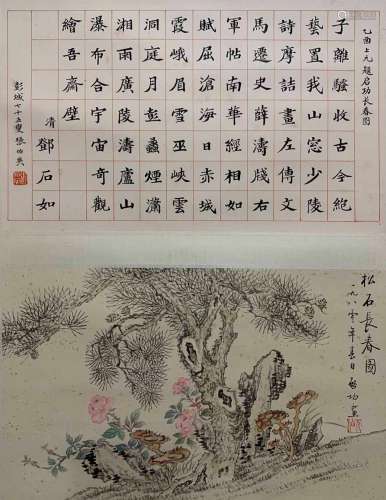 乙酉上元題启功長春图
子離騷收古今絕
藝置我山窓少陵
詩摩詰畫左傳文
馬遷史薛濤牋右
軍帖南華經相如
賦屈滄海日赤城
霞峨眉雪巫峽雲
洞庭月彭蠡煙瀟
湘雨廣陵濤廬山
瀑布合宇宙奇觀
繪吾齋壁
清 鄧石如
彭城七十五叟張伯英
松石長春圖
一九八零年春日啟功畫